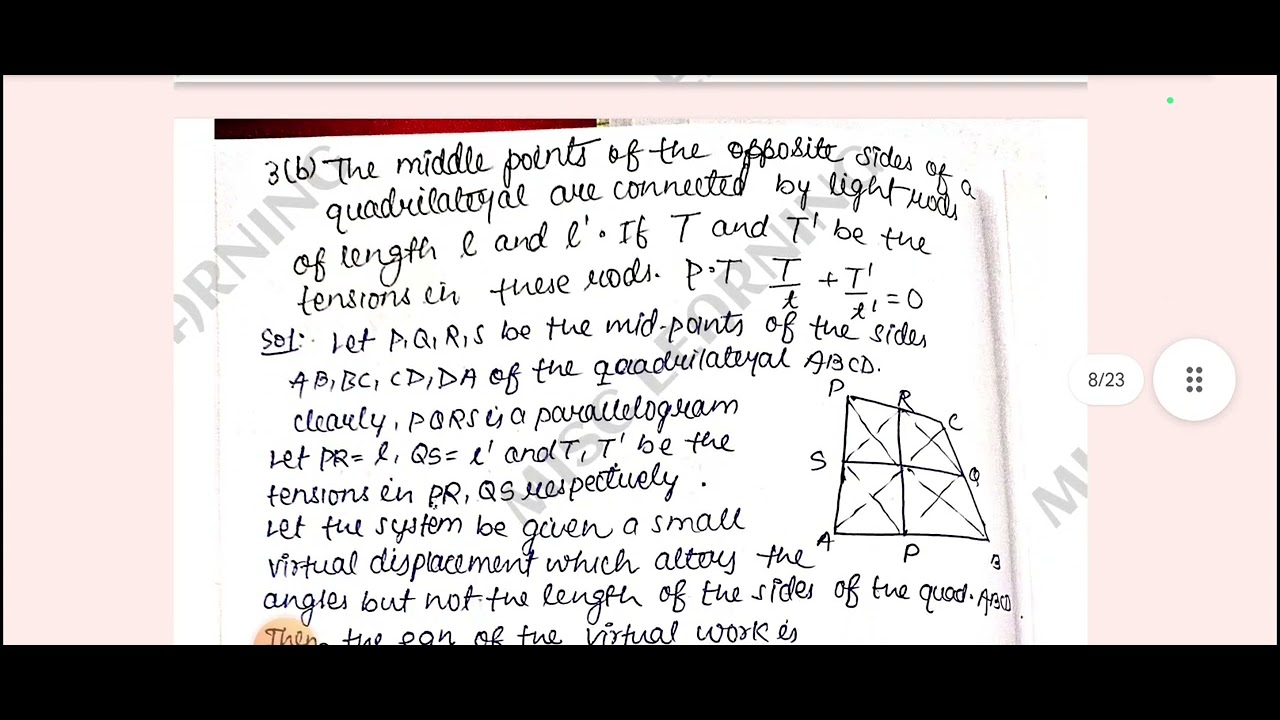 3(b) The middle points of the opposite sides of a
quadrilateral are connected by light rods
of length l and l'. If T and T' be the
tensions in these rods. P.T T/l + T'/l' = 0
Sol:- Let P,Q,R,S be the mid-points of the sides
AB, BC, CD, DA of the quadrilateral ABCD.
clearly, PQRS is a parallelogram
Let PR = l, QS = l' and T, T' be the
tensions in PR, QS respectively.
Let the system be given a small
virtual displacement which altors the
angles but not the length of the sides of the quad. ABCD.
Then the eqn of the virtual work is
D R C
S Q
A P B
8/23
MISC LEORNING